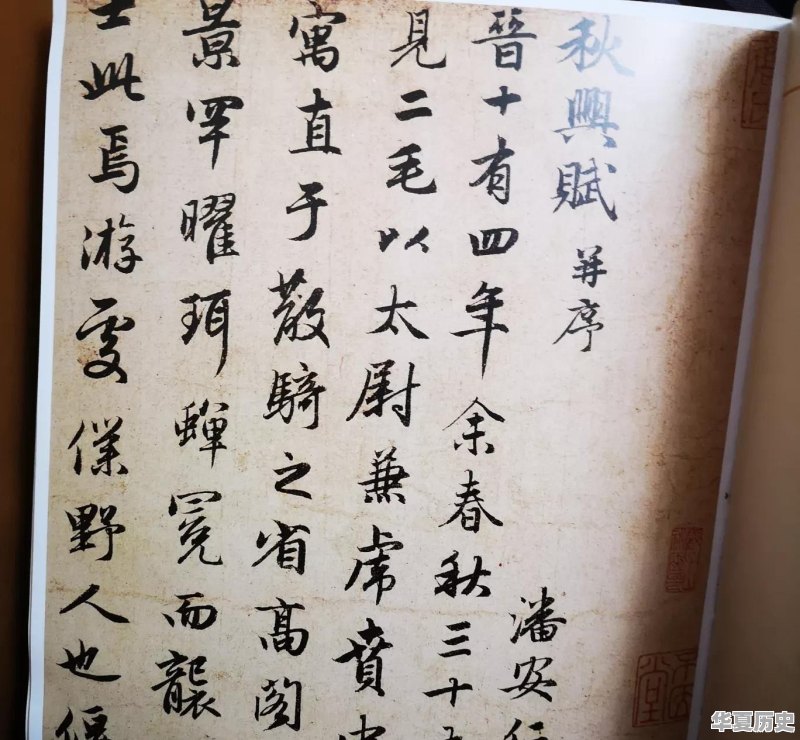 秋興賦 并序
潘安
晉十有四年余春秋三十
見二毛以太尉兼虎賁中
寓直于散騎之省高閣
景罕曜珥蟬冕而襲
士此焉游處僕野人也偃
华夏历史